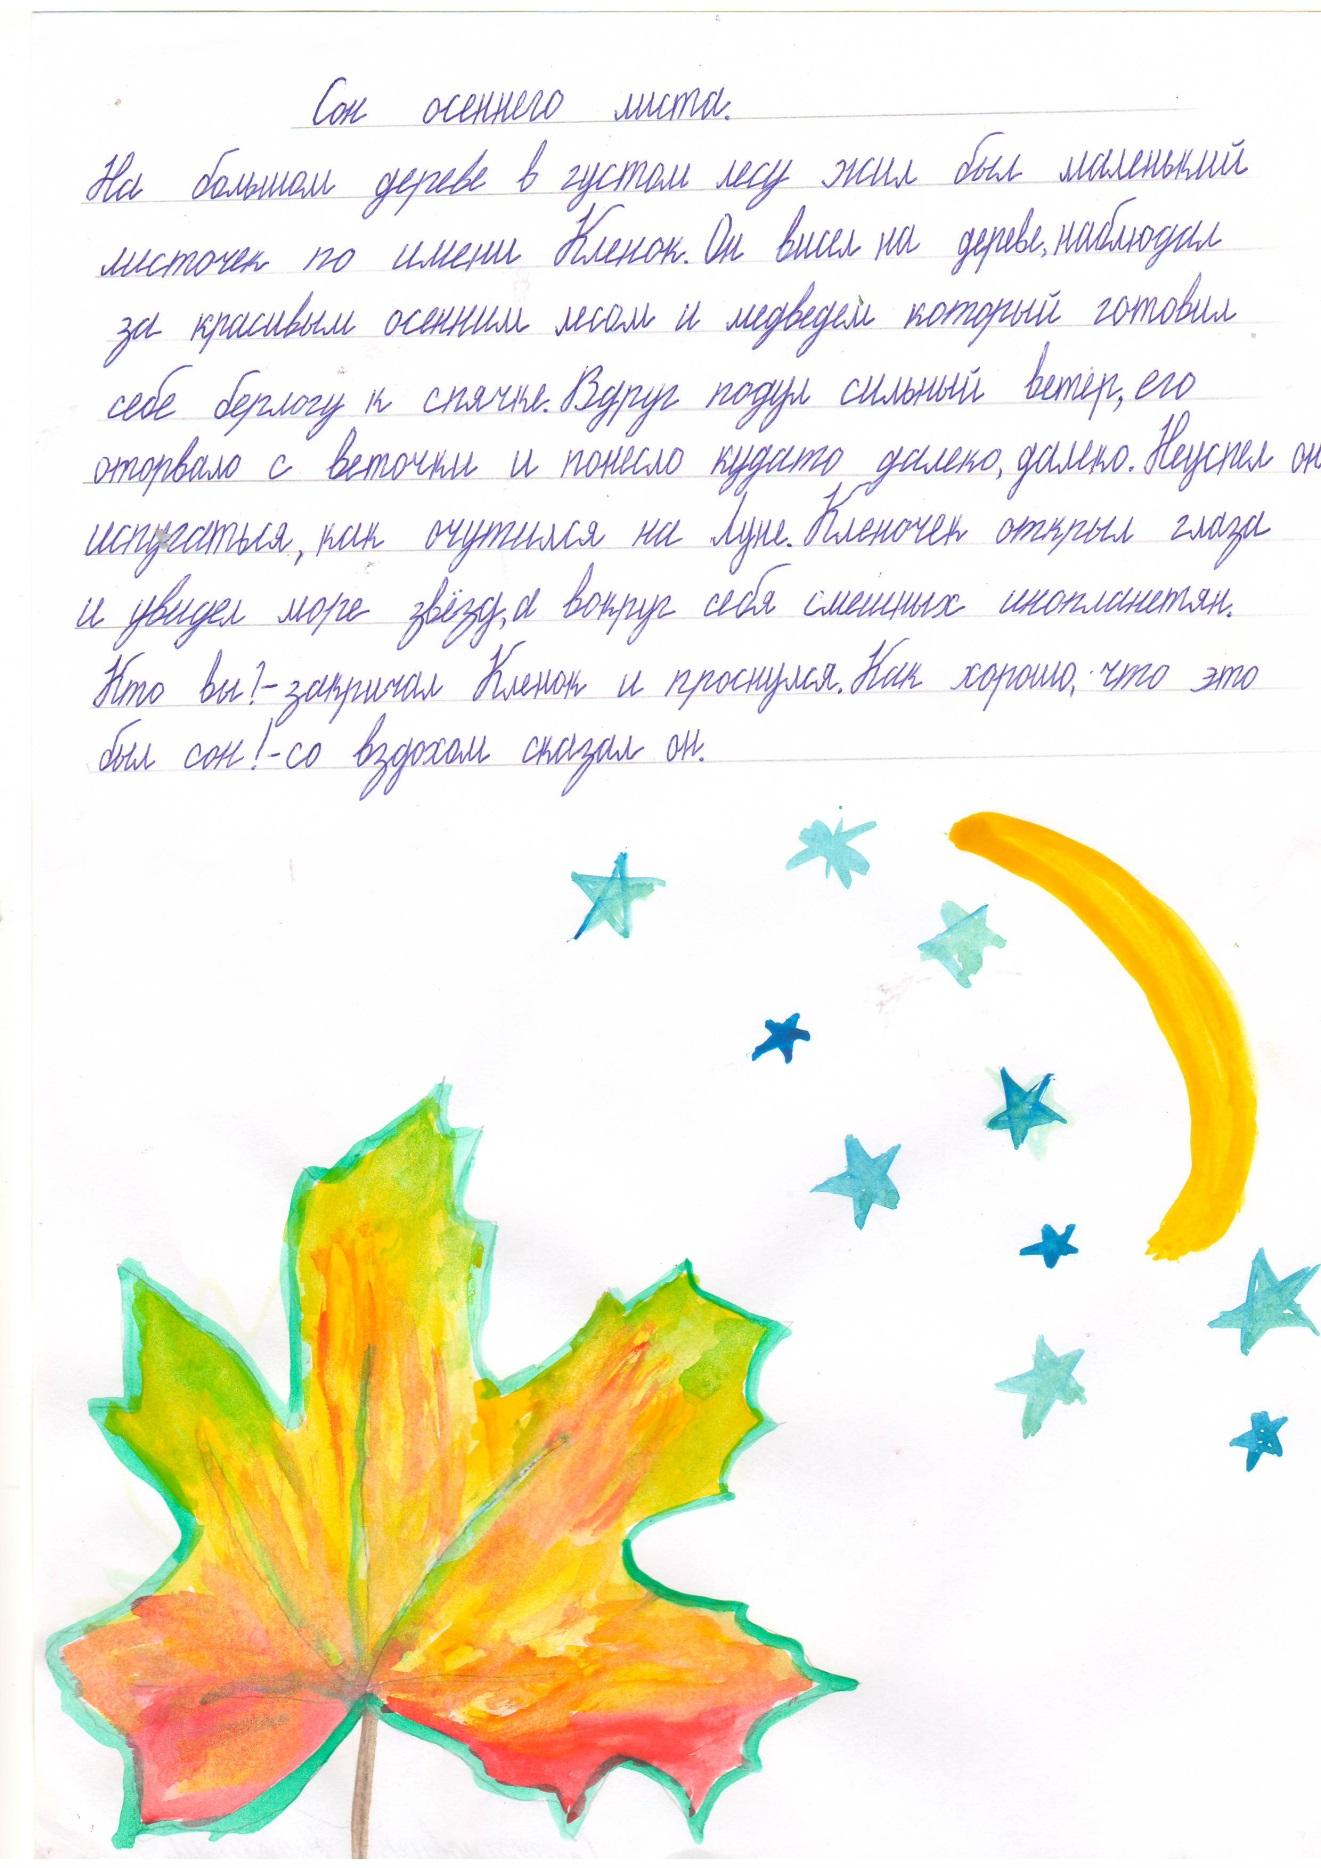 Сон осеннего листа.
На большом дереве в густом лесу жил был маленький
листочек по имени Кленок. Он висел на дереве, наблюдал
за красивым осенним лесом и медведем который готовил
себе берлогу к спячке. Вдруг подул сильный ветер, его
оторвало с веточки и понесло кудато далеко, далеко. Неуспел он
испугаться, как очутился на Луне. Кленочек открыл глаза
и увидел море звёзд, а вокруг себя смешных инопланетян.
Кто вы?-закричал Кленок и проснулся. Как хорошо, что это
был сон!-со вздохом сказал он.